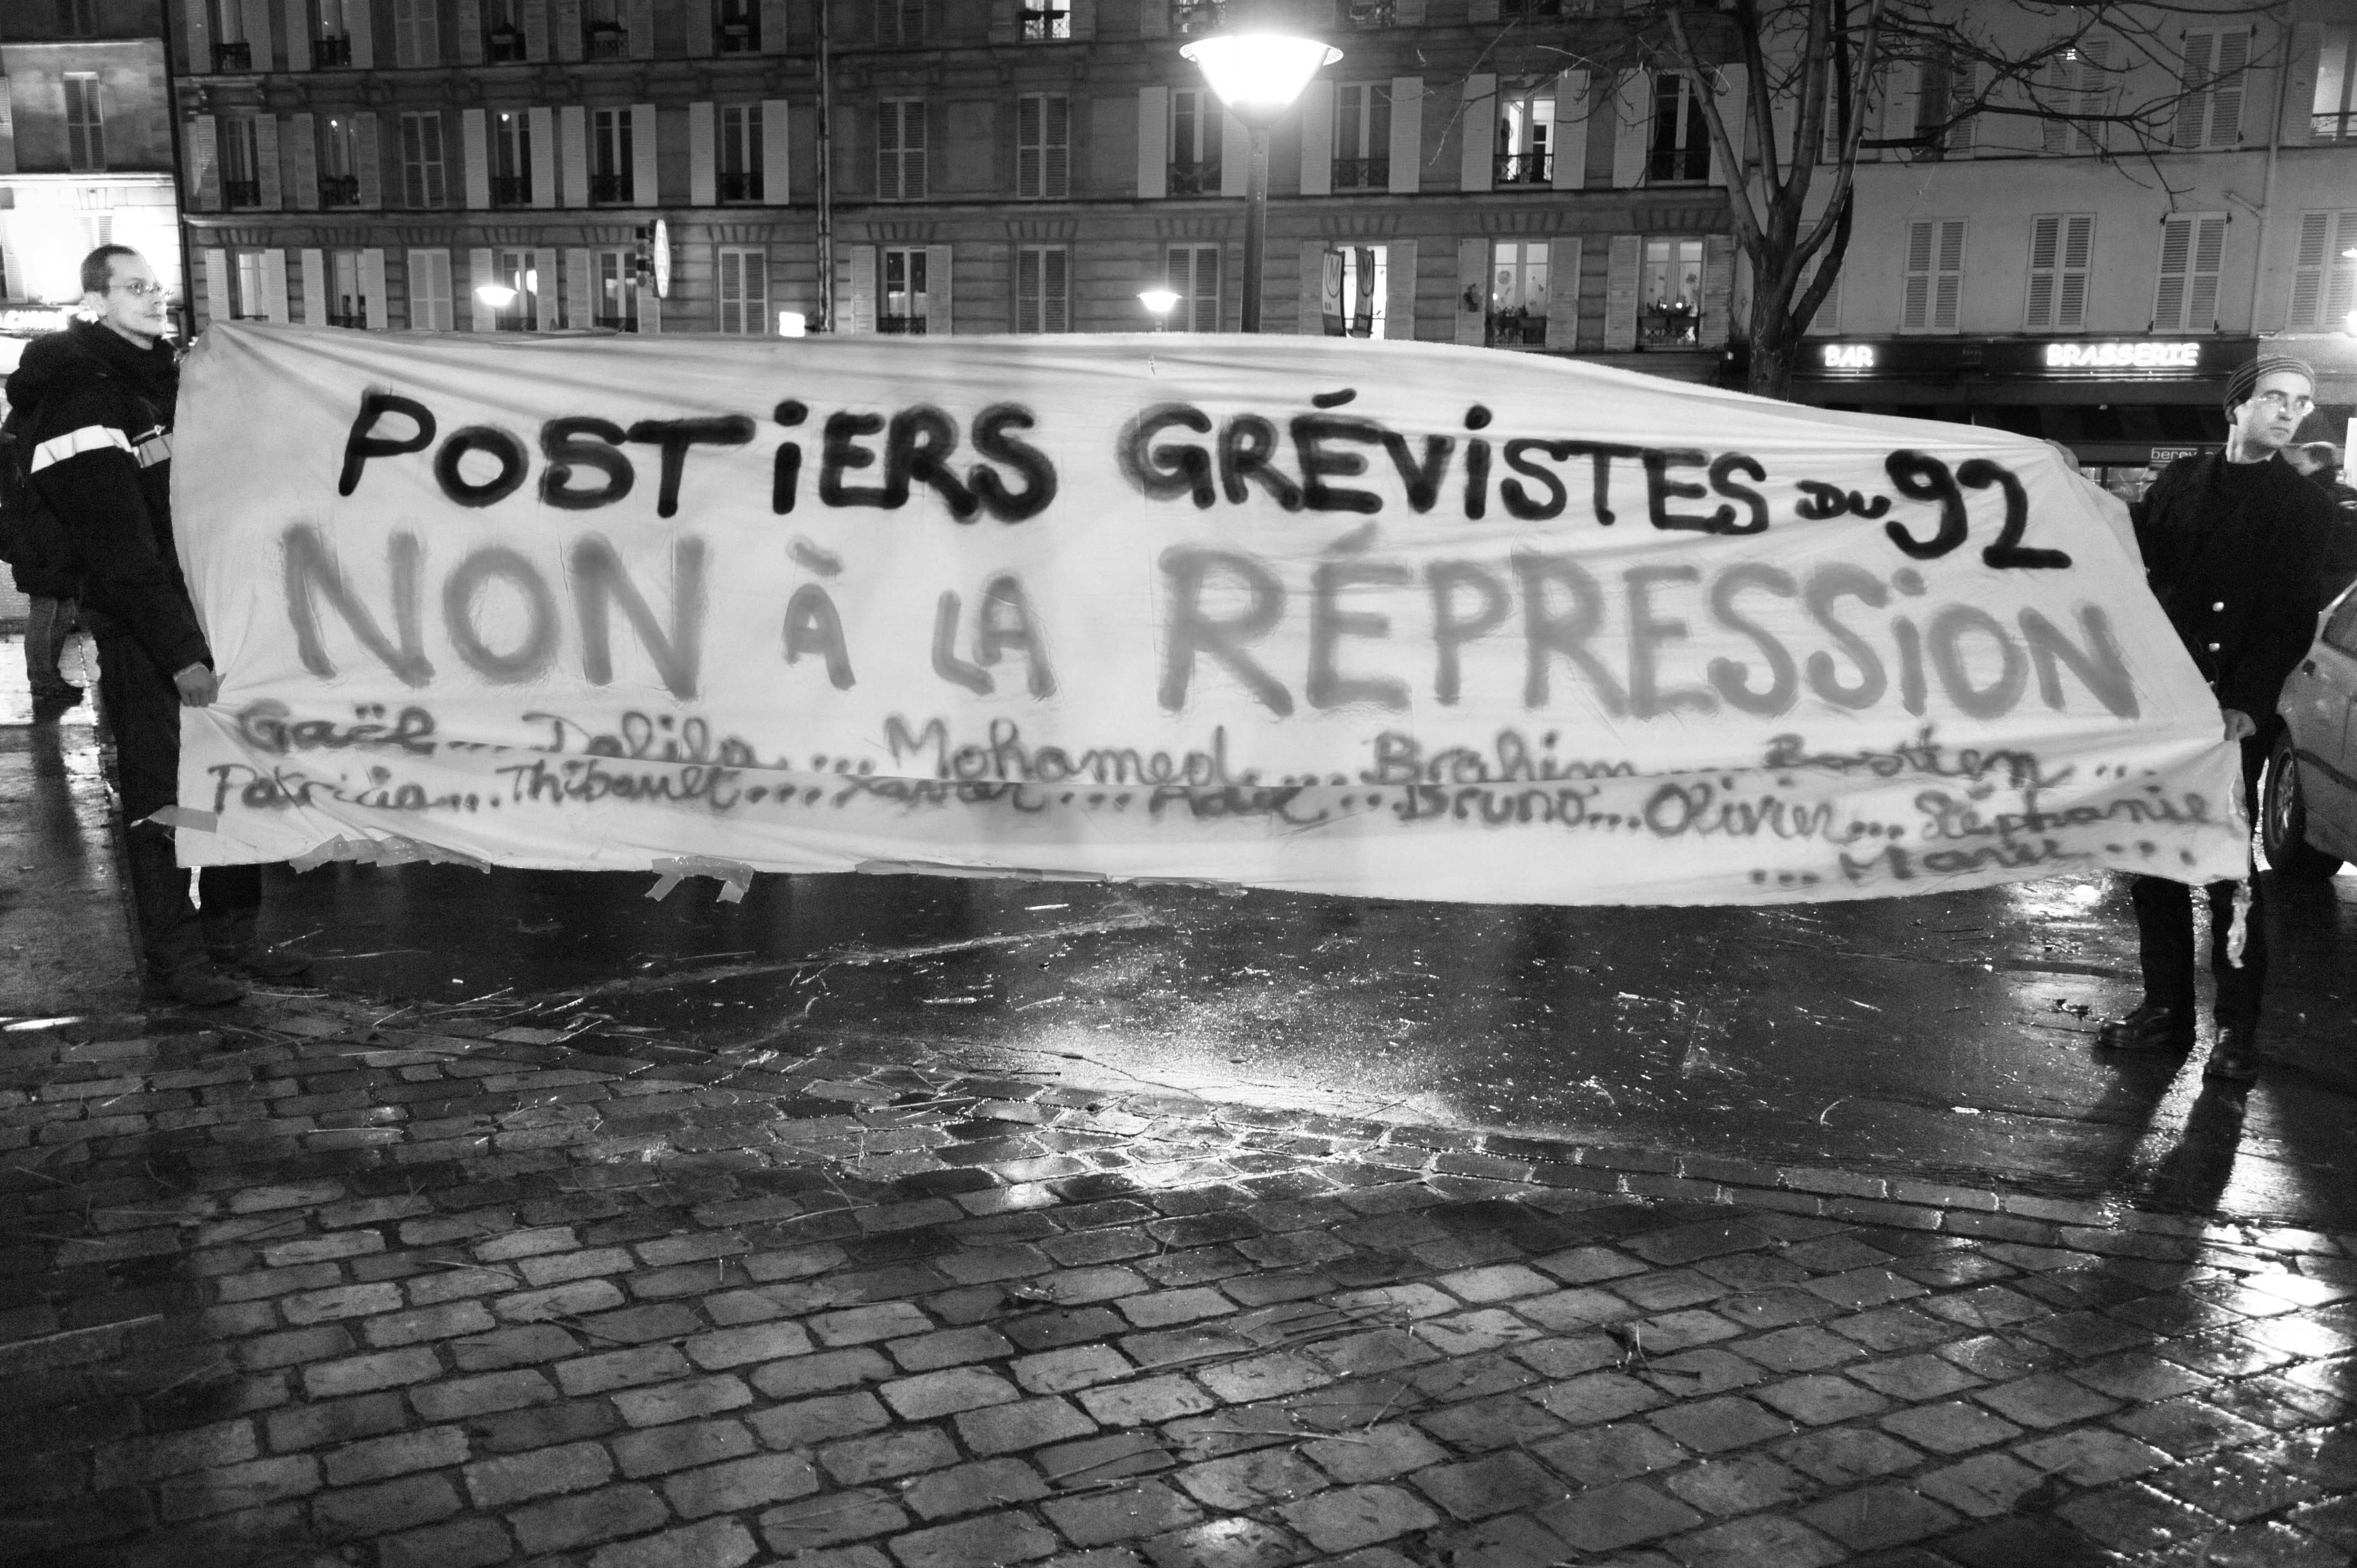 BAR
BRASSERIE
POSTiERS GRÉViSTES DU 92
NON À LA RÉPRESSiON
Gaël... Dalila... Mohamed... Brahim... Bastien...
Patricia... Thibault... Xavier... Bruno... Olivier... Stéphanie